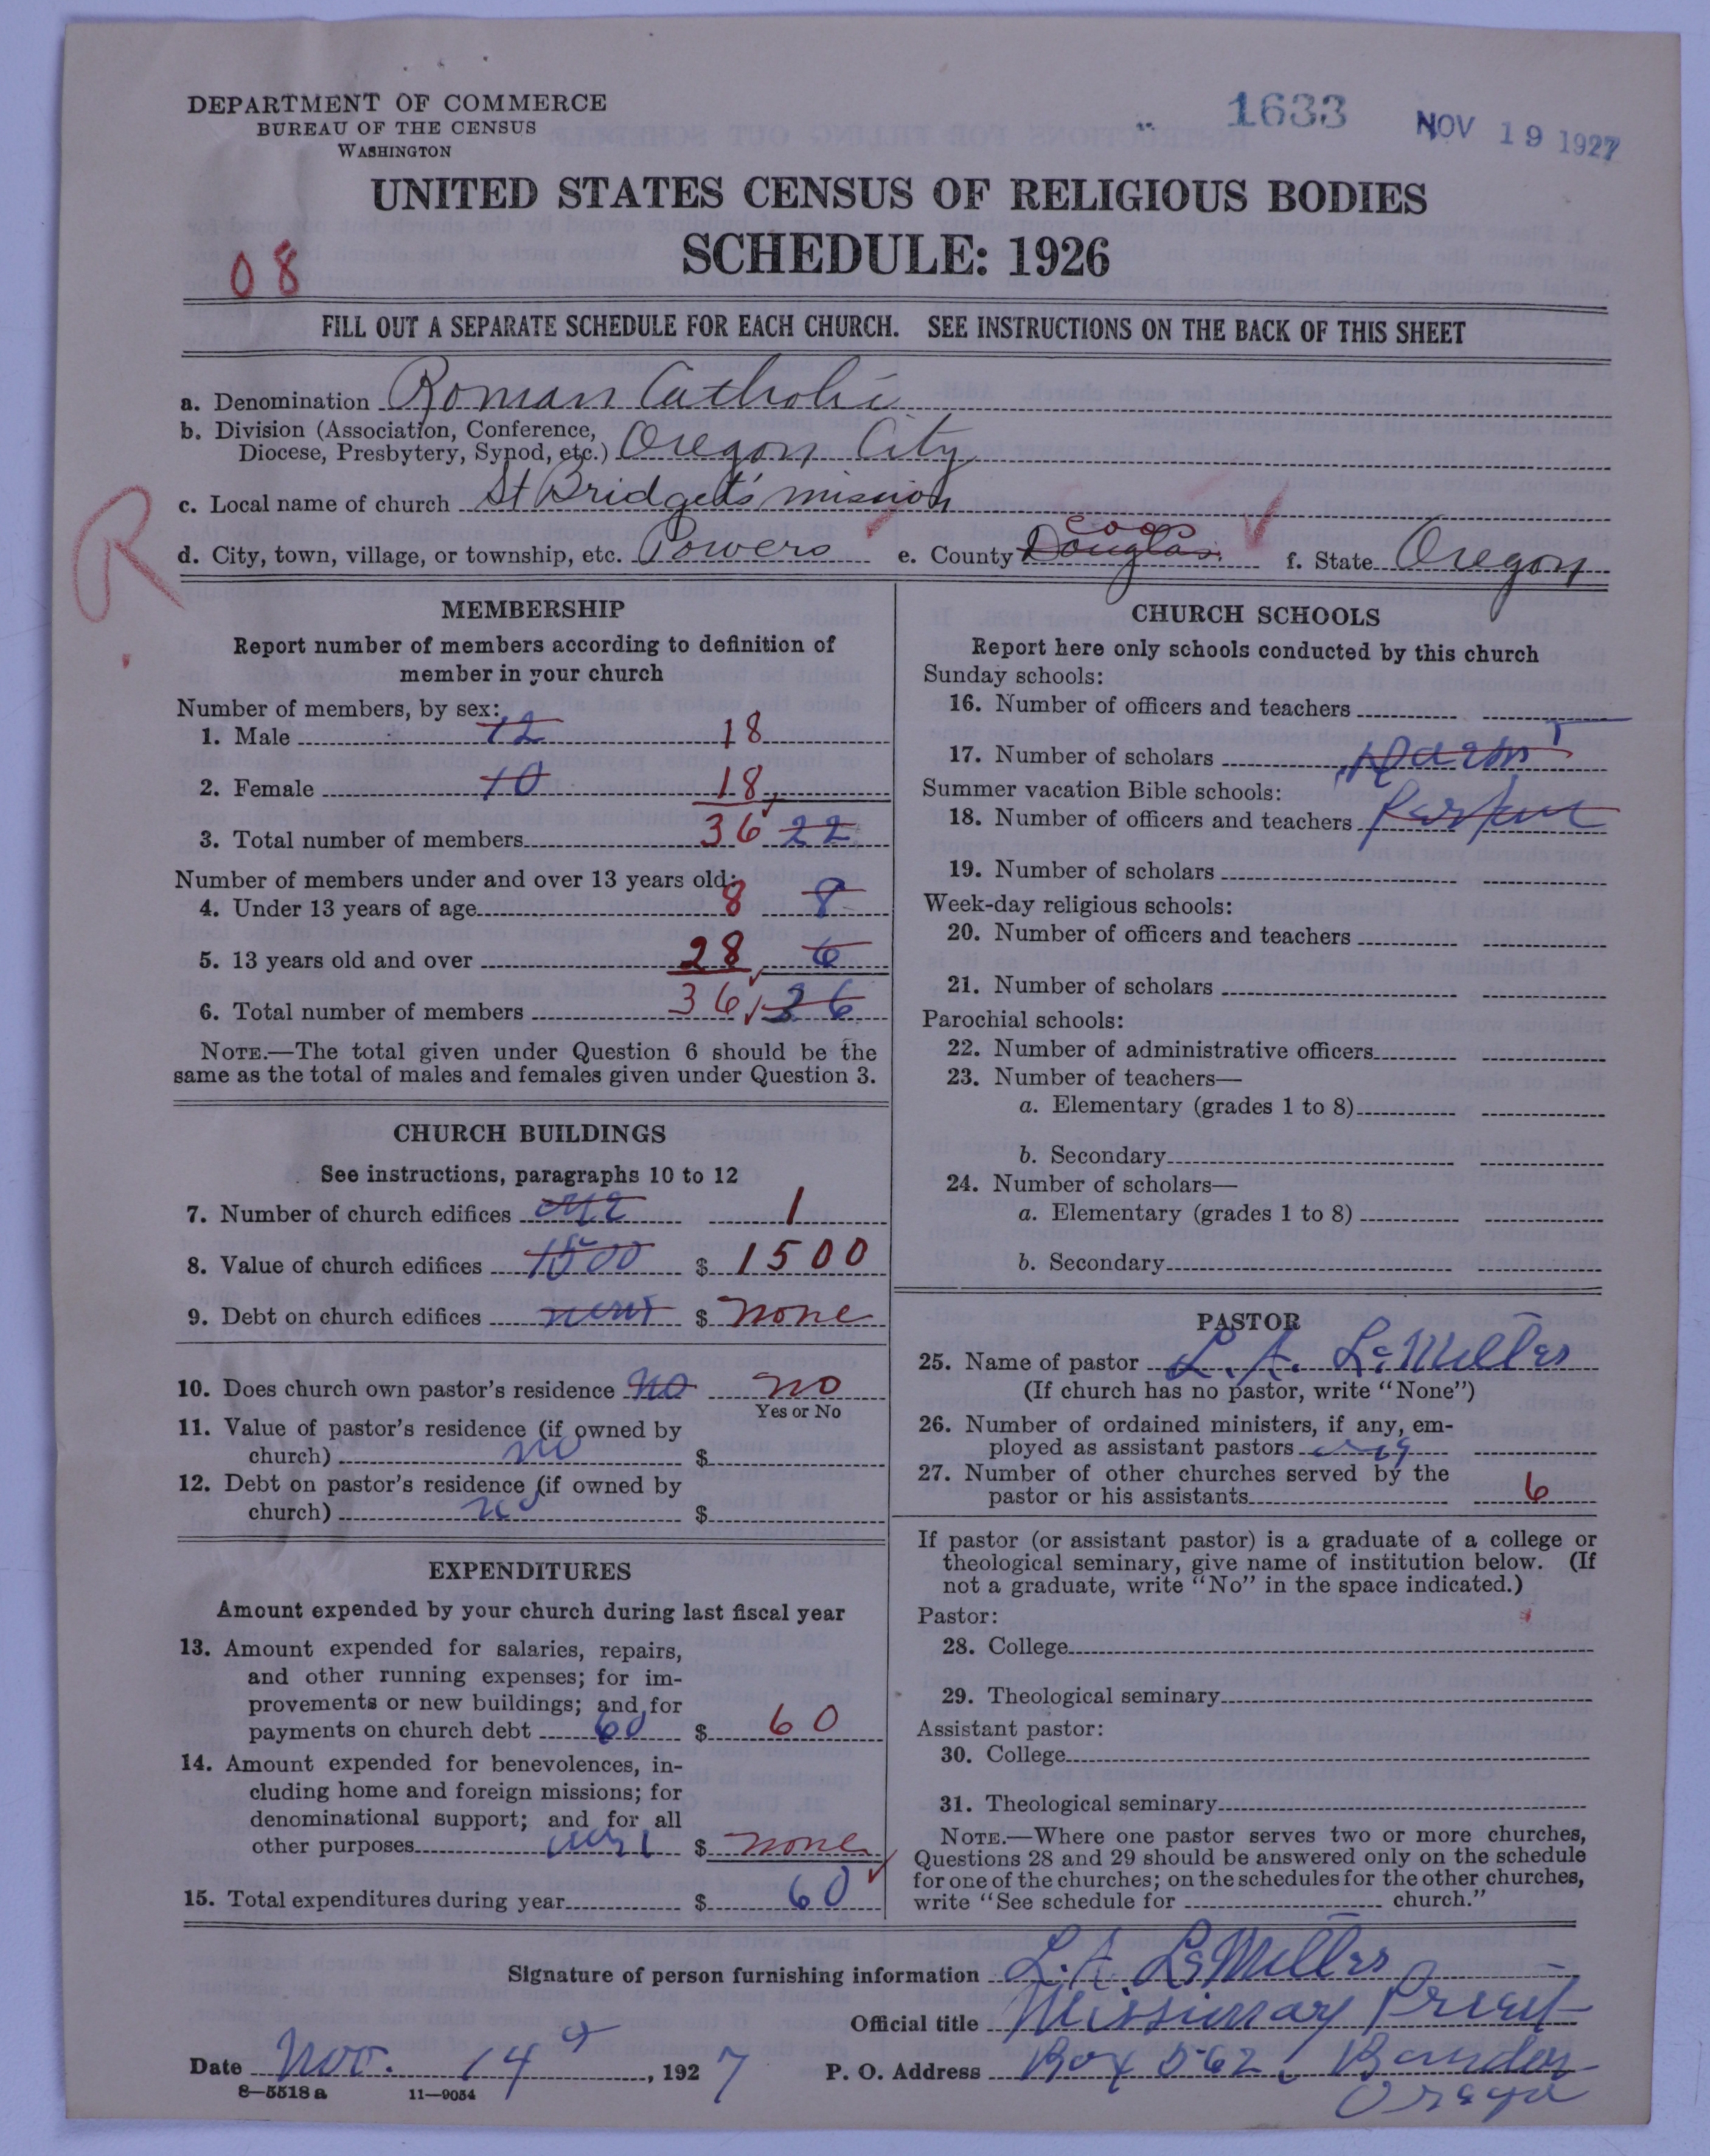 DEPARTMENT OF COMMERCE
BUREAU OF THE CENSUS
WASHINGTON
1633
NOV 19 1927
UNITED STATES CENSUS OF RELIGIOUS BODIES
SCHEDULE: 1926
08
FILL OUT A SEPARATE SCHEDULE FOR EACH CHURCH. SEE INSTRUCTIONS ON THE BACK OF THIS SHEET
a. Denomination Roman Catholic
b. Division (Association, Conference, Diocese, Presbytery, Synod, etc.) Oregon City
c. Local name of church St Bridget's mission
R
d. City, town, village, or township, etc. Powers e. County Douglas Coos f. State Oregon
MEMBERSHIP
Report number of members according to definition of
member in your church
Number of members, by sex:
1. Male 12 18
2. Female 10 18
3. Total number of members 36 22
Number of members under and over 13 years old:
4. Under 13 years of age 8 8
5. 13 years old and over 28 6
6. Total number of members 36 36
NOTE.—The total given under Question 6 should be the
same as the total of males and females given under Question 3.
CHURCH BUILDINGS
See instructions, paragraphs 10 to 12
7. Number of church edifices one 1
8. Value of church edifices 1500 $ 1500
9. Debt on church edifices $ none
10. Does church own pastor's residence no no
Yes or No
11. Value of pastor's residence (if owned by
church) no $
12. Debt on pastor's residence (if owned by
church) no $
EXPENDITURES
Amount expended by your church during last fiscal year
13. Amount expended for salaries, repairs,
and other running expenses; for im-
provements or new buildings; and for
payments on church debt 60 $ 60
14. Amount expended for benevolences, in-
cluding home and foreign missions; for
denominational support; and for all
other purposes $ none
15. Total expenditures during year $ 60
CHURCH SCHOOLS
Report here only schools conducted by this church
Sunday schools:
16. Number of officers and teachers
17. Number of scholars
Summer vacation Bible schools:
18. Number of officers and teachers
19. Number of scholars
Week-day religious schools:
20. Number of officers and teachers
21. Number of scholars
Parochial schools:
22. Number of administrative officers
23. Number of teachers—
a. Elementary (grades 1 to 8)
b. Secondary
24. Number of scholars—
a. Elementary (grades 1 to 8)
b. Secondary
PASTOR
25. Name of pastor L. A. LeMiller
(If church has no pastor, write "None")
26. Number of ordained ministers, if any, em-
ployed as assistant pastors
27. Number of other churches served by the
pastor or his assistants 6
If pastor (or assistant pastor) is a graduate of a college or
theological seminary, give name of institution below. (If
not a graduate, write "No" in the space indicated.)
Pastor:
28. College
29. Theological seminary
Assistant pastor:
30. College
31. Theological seminary
NOTE.—Where one pastor serves two or more churches,
Questions 28 and 29 should be answered only on the schedule
for one of the churches; on the schedules for the other churches,
write "See schedule for church."
Signature of person furnishing information L. A LeMiller
Official title Missionary Priest
Date Nov. 14, 1927 P. O. Address Box 562, Bandon
Oregon
8—5518 a 11—9054